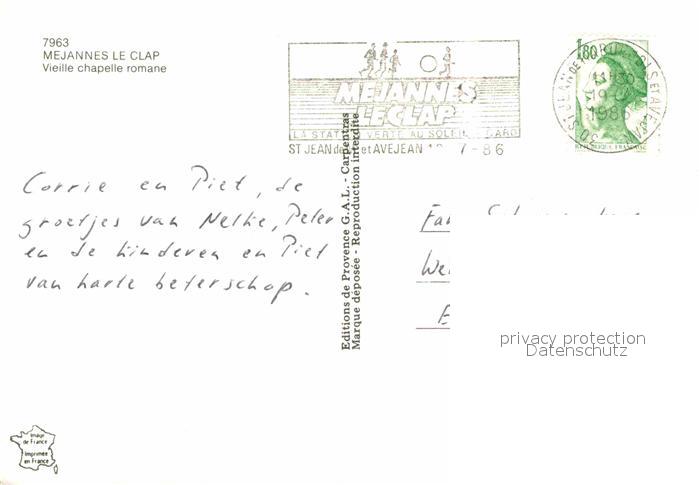 7963
MEJANNES LE CLAP
Vieille chapelle romane
MEJANNES
LE CLAP
LA STATION VERTE AU SOLEIL GARD
ST JEAN de et AVEJEAN 7-86
1,80
1986
REPUBLIQUE FRANÇAISE
Corrie en Piet, de
groetjes van Nelke, Peter
en de kinderen en Piet
van harte beterschap.
Editions de Provence G.A.L. - Carpentras
Marque déposée - Reproduction interdite
Fam
We
E
privacy protection
Datenschutz
Image
de France
Imprimée
en France